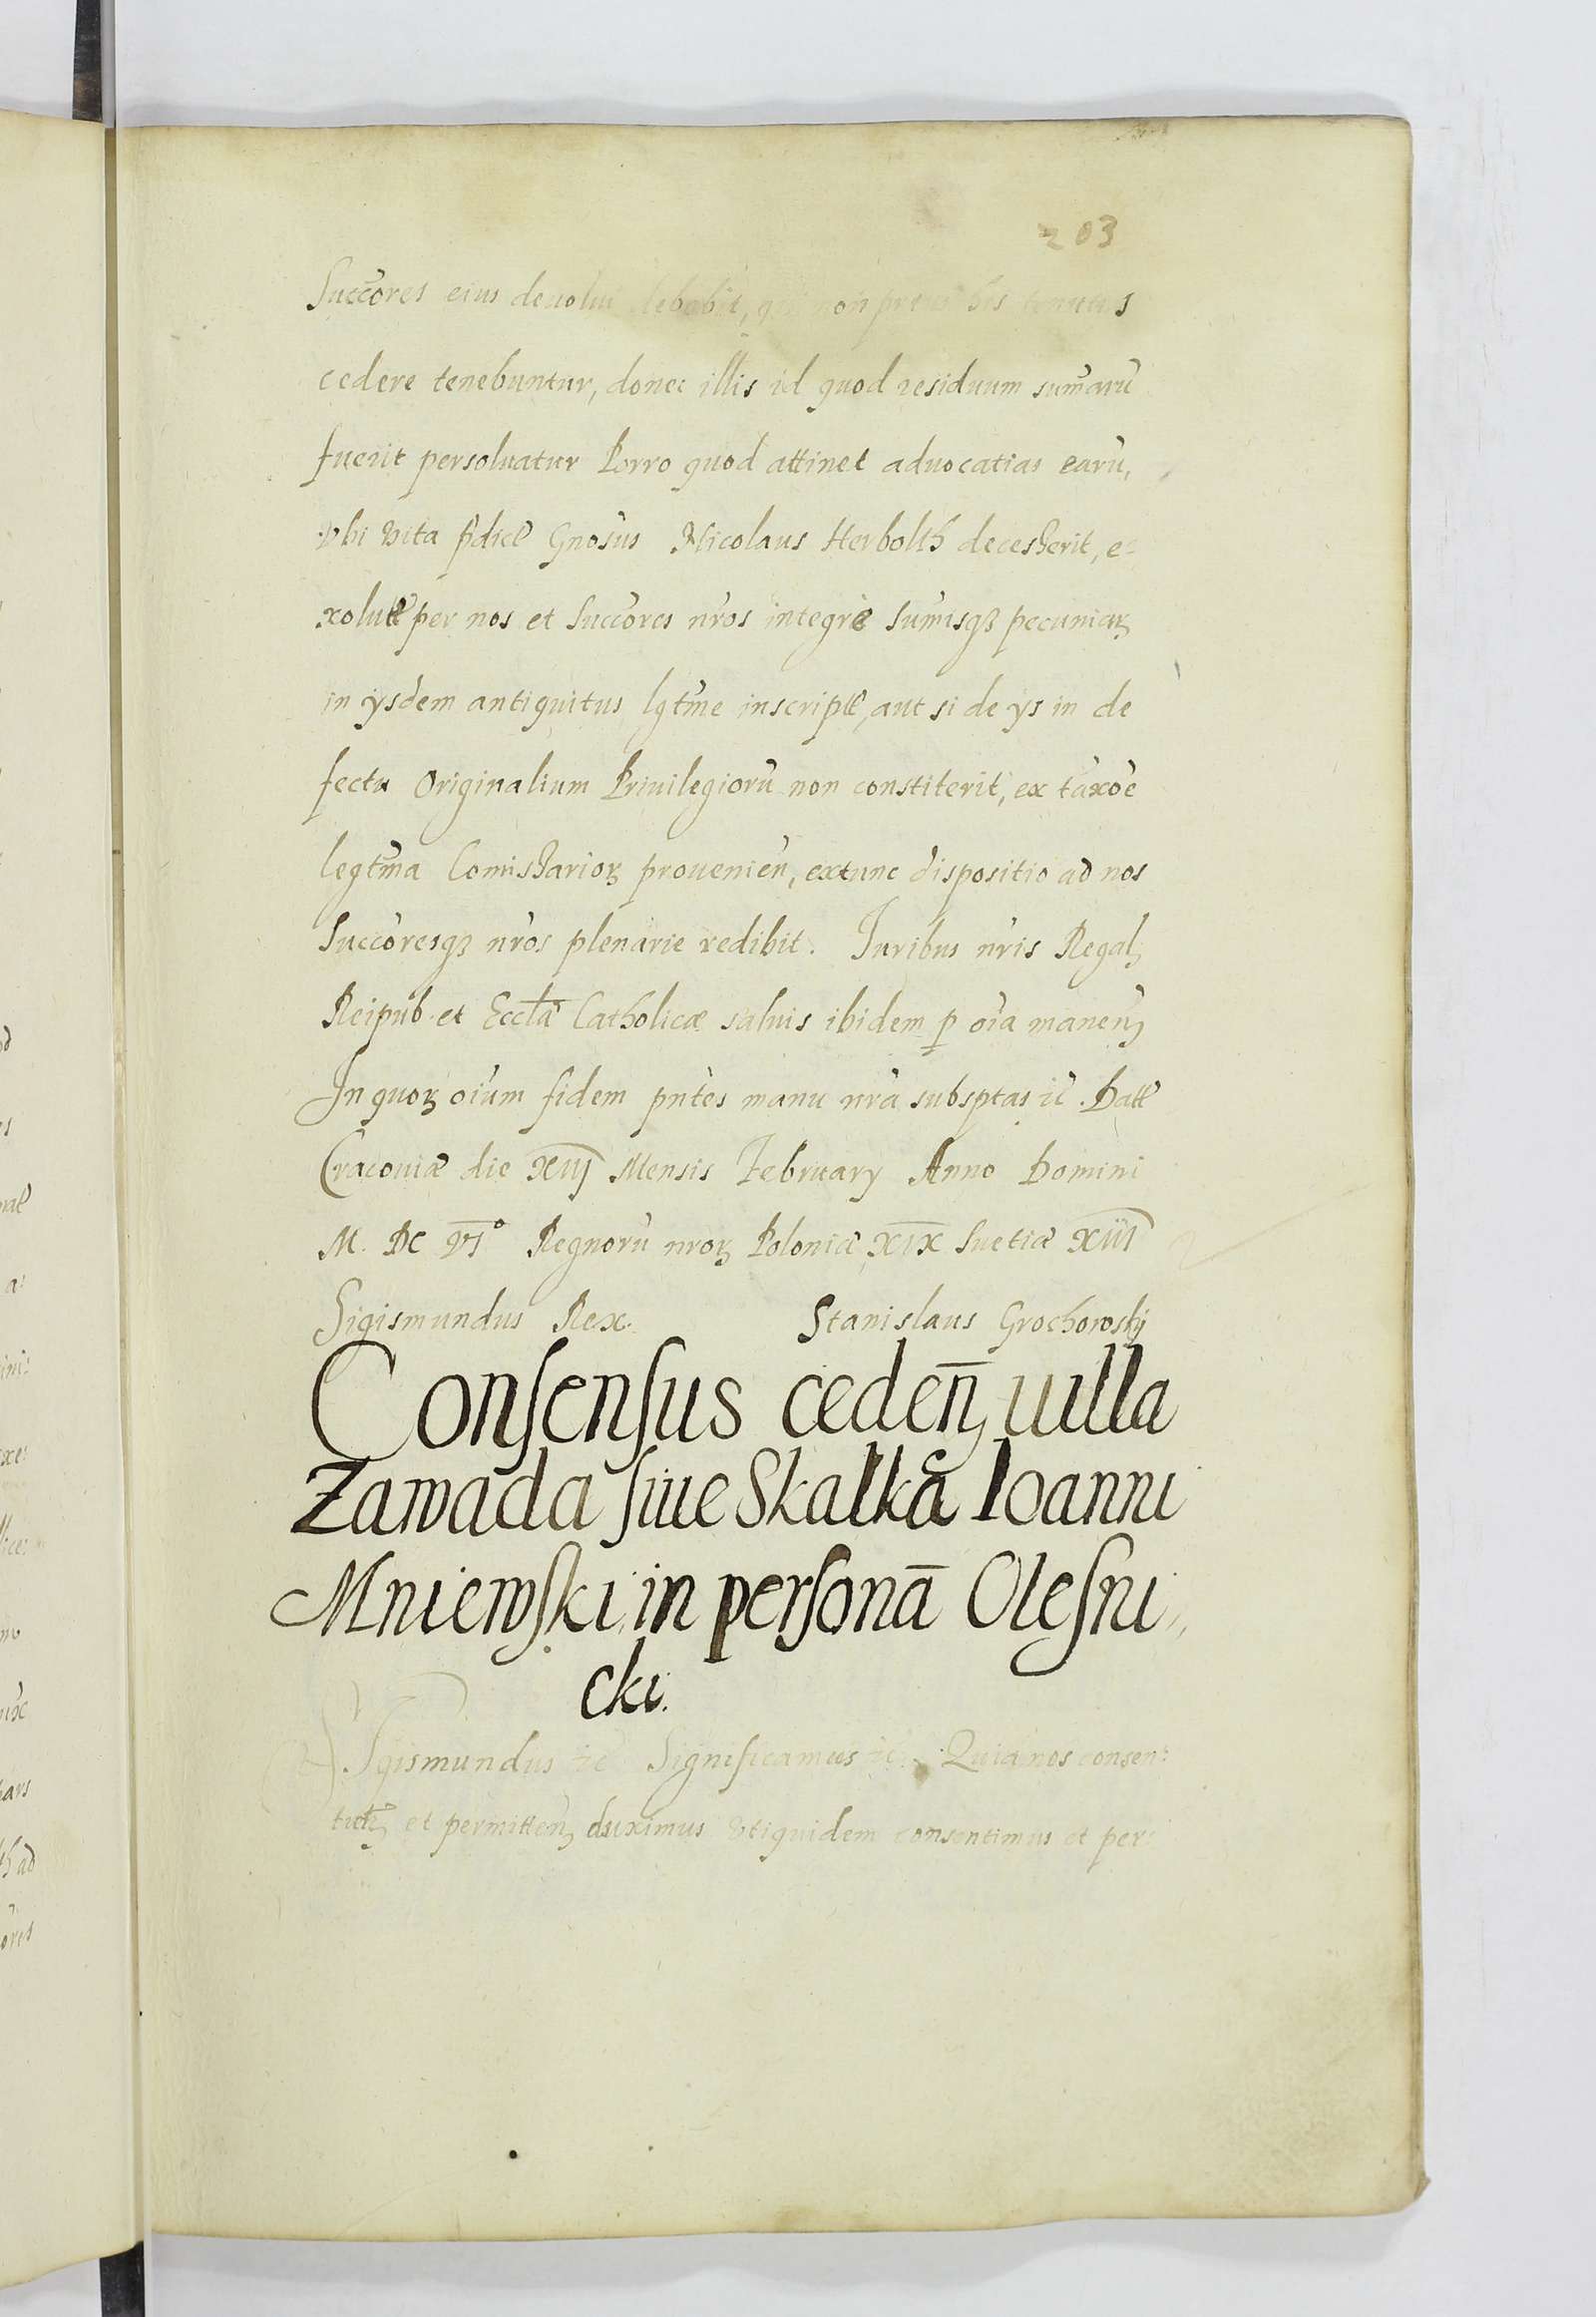 203
Succo̅res eius deuolui debebit, non prius his
cedere tenebuntur, donec illis id quod residuum sum̅arū
fuerit persoluatur Porro quod attinet aduocatias earū,
vbi vita Gnosus Nicolaus Herbolth decesserit, e=
per nos et Succo̅res nr̅os integre sum̅isqꝫ pecuniaꝝ
in ysdem antiquitus lgtm̅e inscript̅, aut si de ys in de
fectu Originalium Priuilegiorū non constiterit, ex taxo̅e
legtm̅a Com̅issarioꝝ prouenien̅, extunc dispositio ad nos
Succo̅resqꝫ nr̅os plenarie redibit. Iuribus nr̅is Regalꝫ
Reipub. et Eccl̅a Catholicæ saluis ibidem ꝑ oi̅a manen̅ꝫ
In quoꝝ oi̅um fidem pn̅tes manu nr̅a subsptas ic̅. Datt̅
Cracouiæ die XIII Mensis February Anno Domini
M. DC VI° Regnorū nr̅oꝝ Poloniæ XIX Suetiæ XIII
Sigismundus Rex. Stanislaus Grochowskij
Consensus ceden̅ꝫ uilla
Zawada siue Skalka Ioanni
Mniewski in personā Olesni,,
cki.
Sigismundus ic̅ Significamus ic̅. Quia nos consen:
et permitten̅ꝫ duximus vtiquidem consentimus et per: